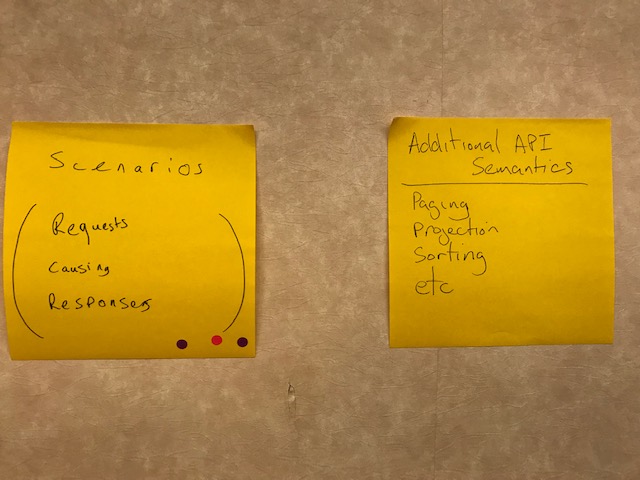 Scenarios
(Requests
Causing
Responses)
Additional API
Semantics
Paging
Projection
Sorting
etc